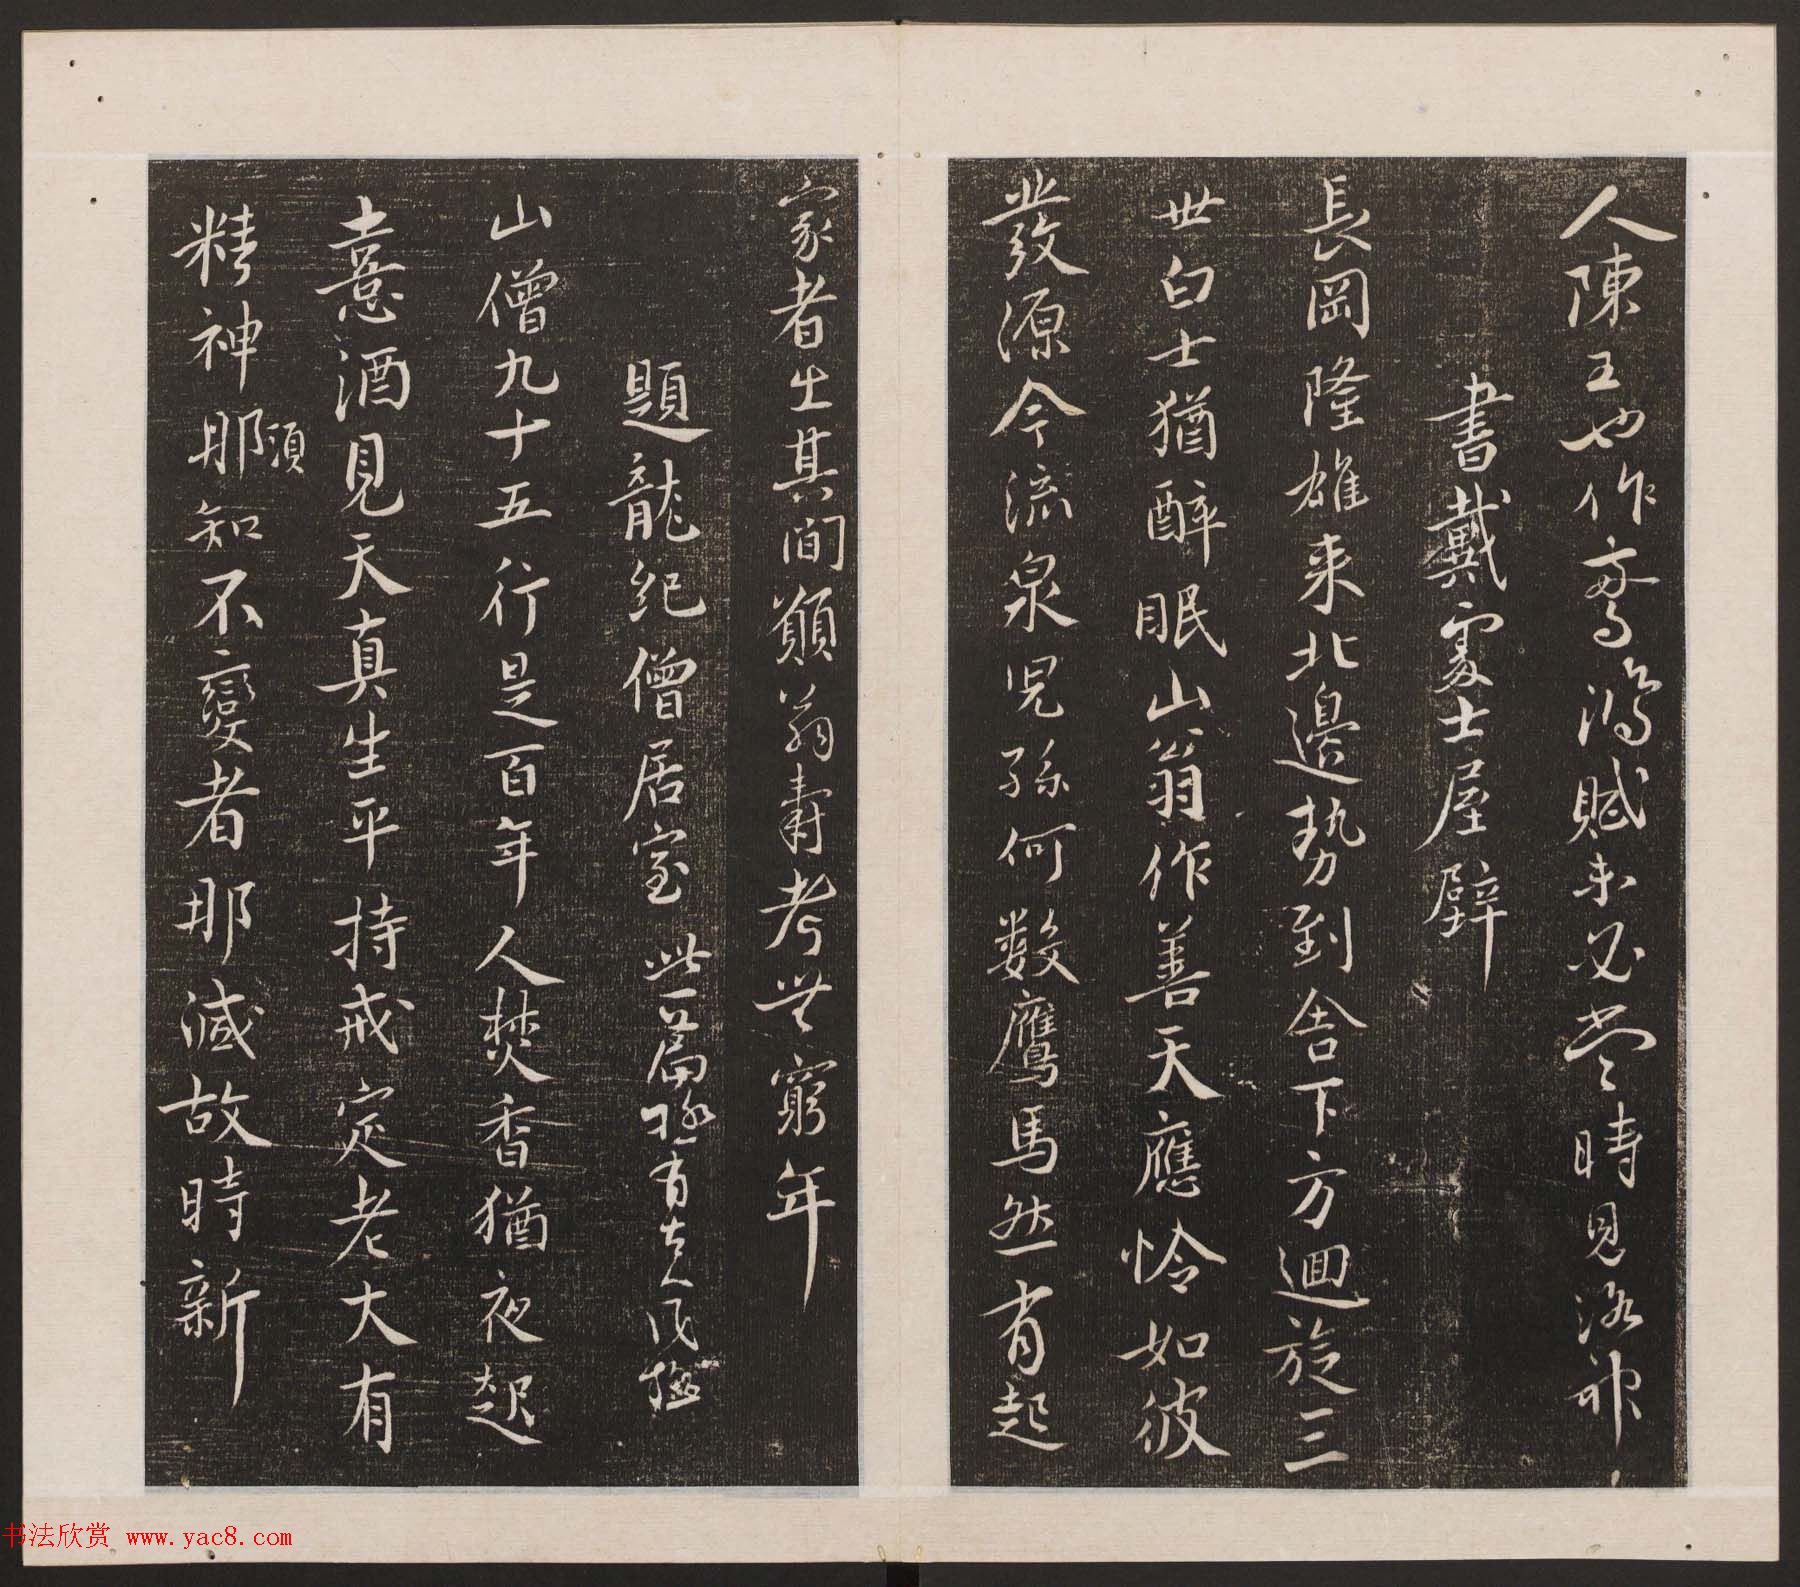 人陳王也作驚鴻賦未必當時見洛神
書戴處士屋壁
長岡隆雄来北邊勢到舍下方迴旋三
世白士猶醉眠山翁作善天應怜如彼
發源今流泉兒孫何數鷹馬然有起
家者生其間願翁壽考無窮年
題龍紀僧居室 此一篇極有古人風格
山僧九十五行是百年人焚香猶夜起
憙酒見天真生平持戒定老大有
精神耶須知不變者那減故時新
书法欣赏 www.yac8.com